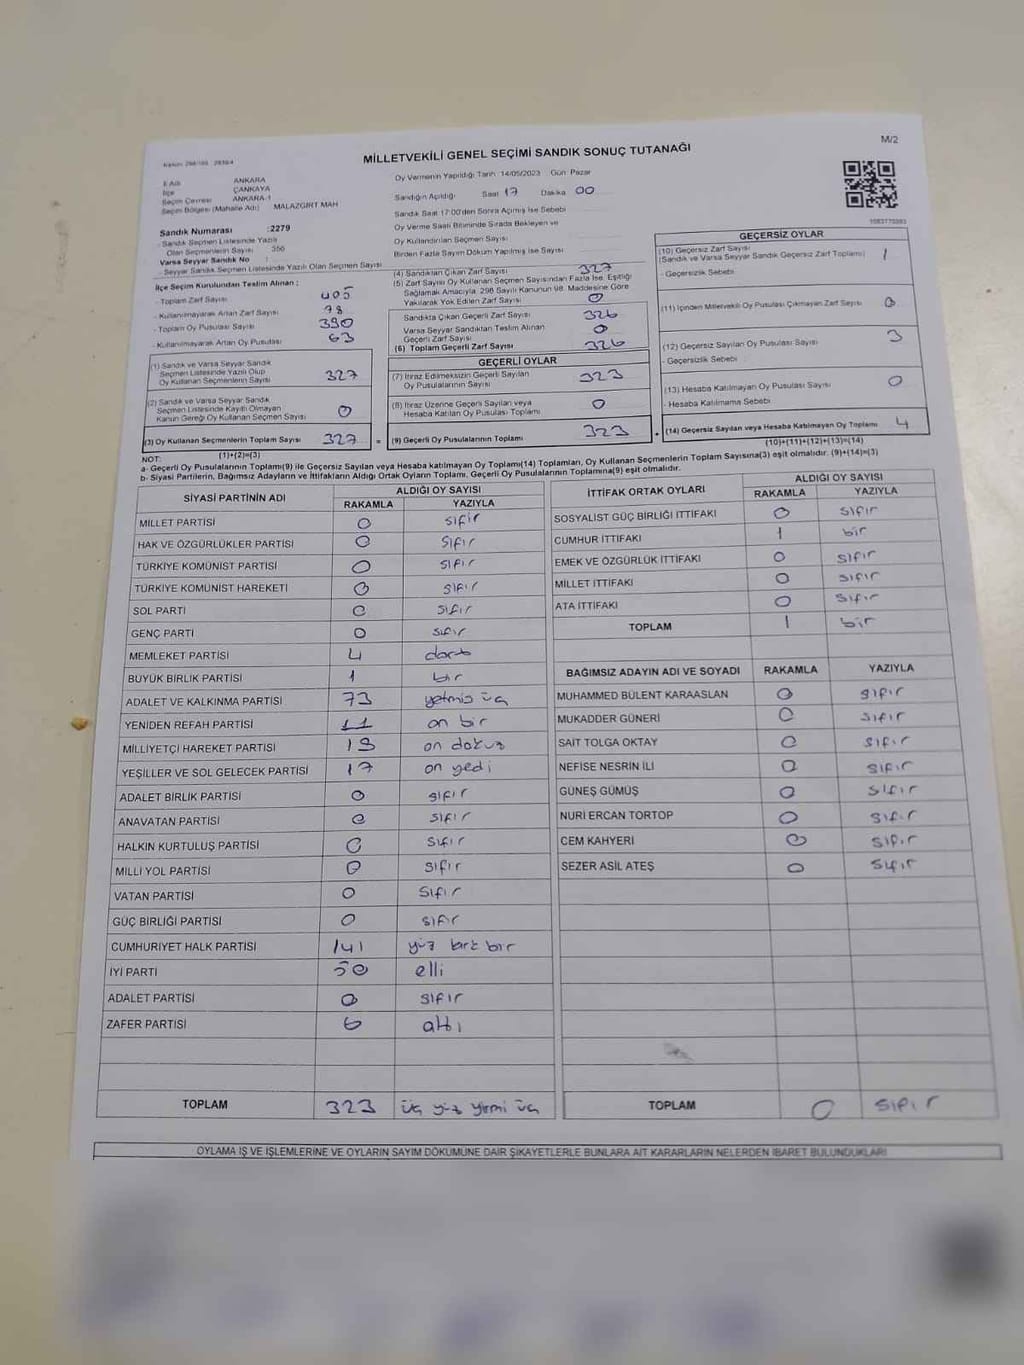 M/2
MİLLETVEKİLİ GENEL SEÇİMİ SANDIK SONUÇ TUTANAĞI
İl Adı ANKARA
İlçe ÇANKAYA
Seçim Çevresi ANKARA-1
Seçim Bölgesi (Mahalle Adı) MALAZGİRT MAH
Sandık Numarası :2279
- Sandık Seçmen Listesinde Yazılı
Olan Seçmenlerin Sayısı 356
Varsa Seyyar Sandık No :
- Seyyar Sandık Seçmen Listesinde Yazılı Olan Seçmen Sayısı
İlçe Seçim Kurulundan Teslim Alınan ;
- Toplam Zarf Sayısı 405
- Kullanılmayarak Artan Zarf Sayısı 78
- Toplam Oy Pusulası Sayısı 390
- Kullanılmayarak Artan Oy Pusulası 63
(1) Sandık ve Varsa Seyyar Sandık
Seçmen Listesinde Yazılı Olup
Oy Kullanan Seçmenlerin Sayısı 327
(2) Sandık ve Varsa Seyyar Sandık
Seçmen Listesinde Kayıtlı Olmayan
Kanun Gereği Oy Kullanan Seçmen Sayısı 0
(3) Oy Kullanan Seçmenlerin Toplam Sayısı 327 =
(1)+(2)=(3)
Oy Vermenin Yapıldığı Tarih 14/05/2023 Gün Pazar
Sandığın Açıldığı Saat 17 Dakika 00
Sandık Saat 17:00'den Sonra Açılmış İse Sebebi
Oy Verme Saati Bitiminde Sırada Bekleyen ve
Oy Kullandırılan Seçmen Sayısı
Birden Fazla Sayım Döküm Yapılmış İse Sayısı
(4) Sandıktan Çıkan Zarf Sayısı 327
(5) Zarf Sayısı Oy Kullanan Seçmen Sayısından Fazla İse, Eşitliği
Sağlamak Amacıyla, 298 Sayılı Kanunun 98. Maddesine Göre
Yakılarak Yok Edilen Zarf Sayısı 0
Sandıkta Çıkan Geçerli Zarf Sayısı 326
Varsa Seyyar Sandıktan Teslim Alınan
Geçerli Zarf Sayısı 0
(6) Toplam Geçerli Zarf Sayısı 326
GEÇERLİ OYLAR
(7) İtiraz Edilmeksizin Geçerli Sayılan
Oy Pusulalarının Sayısı 323
(8) İtiraz Üzerine Geçerli Sayılan veya
Hesaba Katılan Oy Pusulası Toplamı 0
(9) Geçerli Oy Pusulalarının Toplamı 323 +
GEÇERSİZ OYLAR
(10) Geçersiz Zarf Sayısı
(Sandık ve Varsa Seyyar Sandık Geçersiz Zarf Toplamı) 1
- Geçersizlik Sebebi
(11) İçinden Milletvekili Oy Pusulası Çıkmayan Zarf Sayısı 0
(12) Geçersiz Sayılan Oy Pusulası Sayısı 3
- Geçersizlik Sebebi
(13) Hesaba Katılmayan Oy Pusulası Sayısı 0
- Hesaba Katılmama Sebebi
(14) Geçersiz Sayılan veya Hesaba Katılmayan Oy Toplamı 4
(10)+(11)+(12)+(13)=(14)
NOT:
a- Geçerli Oy Pusulalarının Toplamı(9) ile Geçersiz Sayılan veya Hesaba katılmayan Oy Toplamı(14) Toplamları, Oy Kullanan Seçmenlerin Toplam Sayısına(3) eşit olmalıdır. (9)+(14)=(3)
b- Siyasi Partilerin, Bağımsız Adayların ve İttifakların Aldığı Ortak Oyların Toplamı, Geçerli Oy Pusulalarının Toplamına(9) eşit olmalıdır.
SİYASİ PARTİNİN ADI ALDIĞI OY SAYISI
RAKAMLA YAZIYLA
MİLLET PARTİSİ 0 sıfır
HAK VE ÖZGÜRLÜKLER PARTİSİ 0 sıfır
TÜRKİYE KOMÜNİST PARTİSİ 0 sıfır
TÜRKİYE KOMÜNİST HAREKETİ 0 sıfır
SOL PARTİ 0 sıfır
GENÇ PARTİ 0 sıfır
MEMLEKET PARTİSİ 4 dört
BÜYÜK BİRLİK PARTİSİ 1 bir
ADALET VE KALKINMA PARTİSİ 73 yetmiş üç
YENİDEN REFAH PARTİSİ 11 on bir
MİLLİYETÇİ HAREKET PARTİSİ 19 on dokuz
YEŞİLLER VE SOL GELECEK PARTİSİ 17 on yedi
ADALET BİRLİK PARTİSİ 0 sıfır
ANAVATAN PARTİSİ 0 sıfır
HALKIN KURTULUŞ PARTİSİ 0 sıfır
MİLLİ YOL PARTİSİ 0 sıfır
VATAN PARTİSİ 0 sıfır
GÜÇ BİRLİĞİ PARTİSİ 0 sıfır
CUMHURİYET HALK PARTİSİ 141 yüz kırk bir
İYİ PARTİ 50 elli
ADALET PARTİSİ 0 sıfır
ZAFER PARTİSİ 6 altı
TOPLAM 323 üç yüz yirmi üç
İTTİFAK ORTAK OYLARI ALDIĞI OY SAYISI
RAKAMLA YAZIYLA
SOSYALİST GÜÇ BİRLİĞİ İTTİFAKI 0 sıfır
CUMHUR İTTİFAKI 1 bir
EMEK VE ÖZGÜRLÜK İTTİFAKI 0 sıfır
MİLLET İTTİFAKI 0 sıfır
ATA İTTİFAKI 0 sıfır
TOPLAM 1 bir
BAĞIMSIZ ADAYIN ADI VE SOYADI RAKAMLA YAZIYLA
MUHAMMED BÜLENT KARAASLAN 0 sıfır
MUKADDER GÜNERİ 0 sıfır
SAİT TOLGA OKTAY 0 sıfır
NEFİSE NESRİN İLİ 0 sıfır
GÜNEŞ GÜMÜŞ 0 sıfır
NURİ ERCAN TORTOP 0 sıfır
CEM KAHYERİ 0 sıfır
SEZER ASİL ATEŞ 0 sıfır
TOPLAM 0 sıfır
OYLAMA İŞ VE İŞLEMLERİNE VE OYLARIN SAYIM DÖKÜMÜNE DAİR ŞİKAYETLERLE BUNLARA AİT KARARLARIN NELERDEN İBARET BULUNDUKLARI